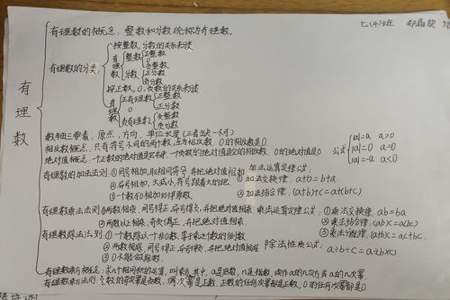 七(4)班
有理数
有理数的概念：整数和分数统称为有理数。
有理数的分类
按整数、分数的关系来分
有理数
整数
正整数
0
负整数
分数
正分数
负分数
按正数、0、负数的关系来分
有理数
正有理数
正整数
正分数
0
负有理数
负整数
负分数
数轴三要素：原点，方向，单位长度(三者缺一不可)
相反数概念：只有符号不同的两个数，互为相反数，0的相反数是0
绝对值概念：一个正数的绝对值是它本身，一个负数的绝对值是它的相反数，0的绝对值是0 公式
|a|=a, a>0
|a|=0 a=0
|a|=-a a<0
有理数的加法法则
①同号相加，取相同符号，并把绝对值相加
②异号相加，大减小，符号跟着大的跑
③一个数同0相加仍得原数
加法运算定律公式
①加法交换律，a+b=b+a
②加法结合律，(a+b)+c=a+(b+c)
有理数乘法法则
①两数相乘，同号得正，异号得负，并把绝对值相乘
乘法运算定律公式：
①乘法交换律，ab=ba
②乘法结合律，
③乘法分配律，
有理数除法法则
①一个数除以一个非0数，等于乘这个数的倒数
②两数相除，同号得正，异号得负，并把绝对值相除
③0不能做除数
除法性质公式：a÷b÷c=a÷(b×c)
有理数乘方概念：求n个相同积的运算，叫乘方，其中，a是底数，n是指数，